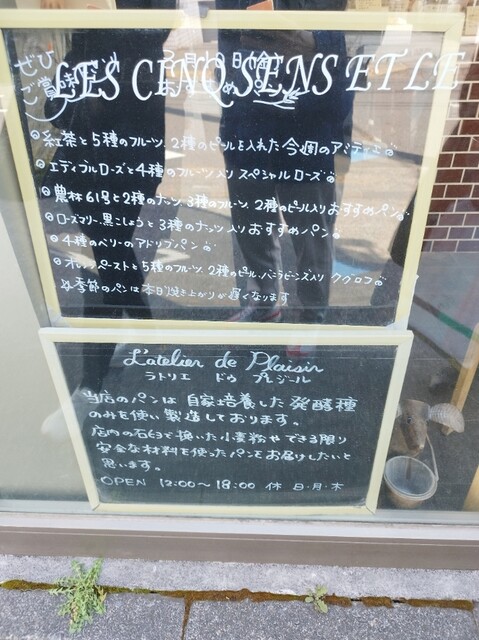 ぜひ
ご賞味
LES CINQ SENS ET LE
紅茶と5種のフルーツ、2種のピールを入れた今週のアミティエ
エディブルローズと4種のフルーツ入りスペシャルローズ
農林61号と2種のナッツ、3種のフルーツ、2種のピール入りおすすめパン
ローズマリー、黒こしょうと3種のナッツ入りおすすめパン
4種のベリーのアドリブパン
オレンジペーストと5種のフルーツ、2種のピール、バニラビーンズ入り ククロフ
季節のパンは本日焼き上がりが遅くなります
L'atelier de Plaisir
ラトリエ ドゥ プレジール
当店のパンは自家培養した発酵種
のみを使い製造しております。
店内の石臼で挽いた小麦粉やできる限り
安全な材料を使ったパンをお届けしたいと
思います。
OPEN 12:00〜18:00 休 日・月・木